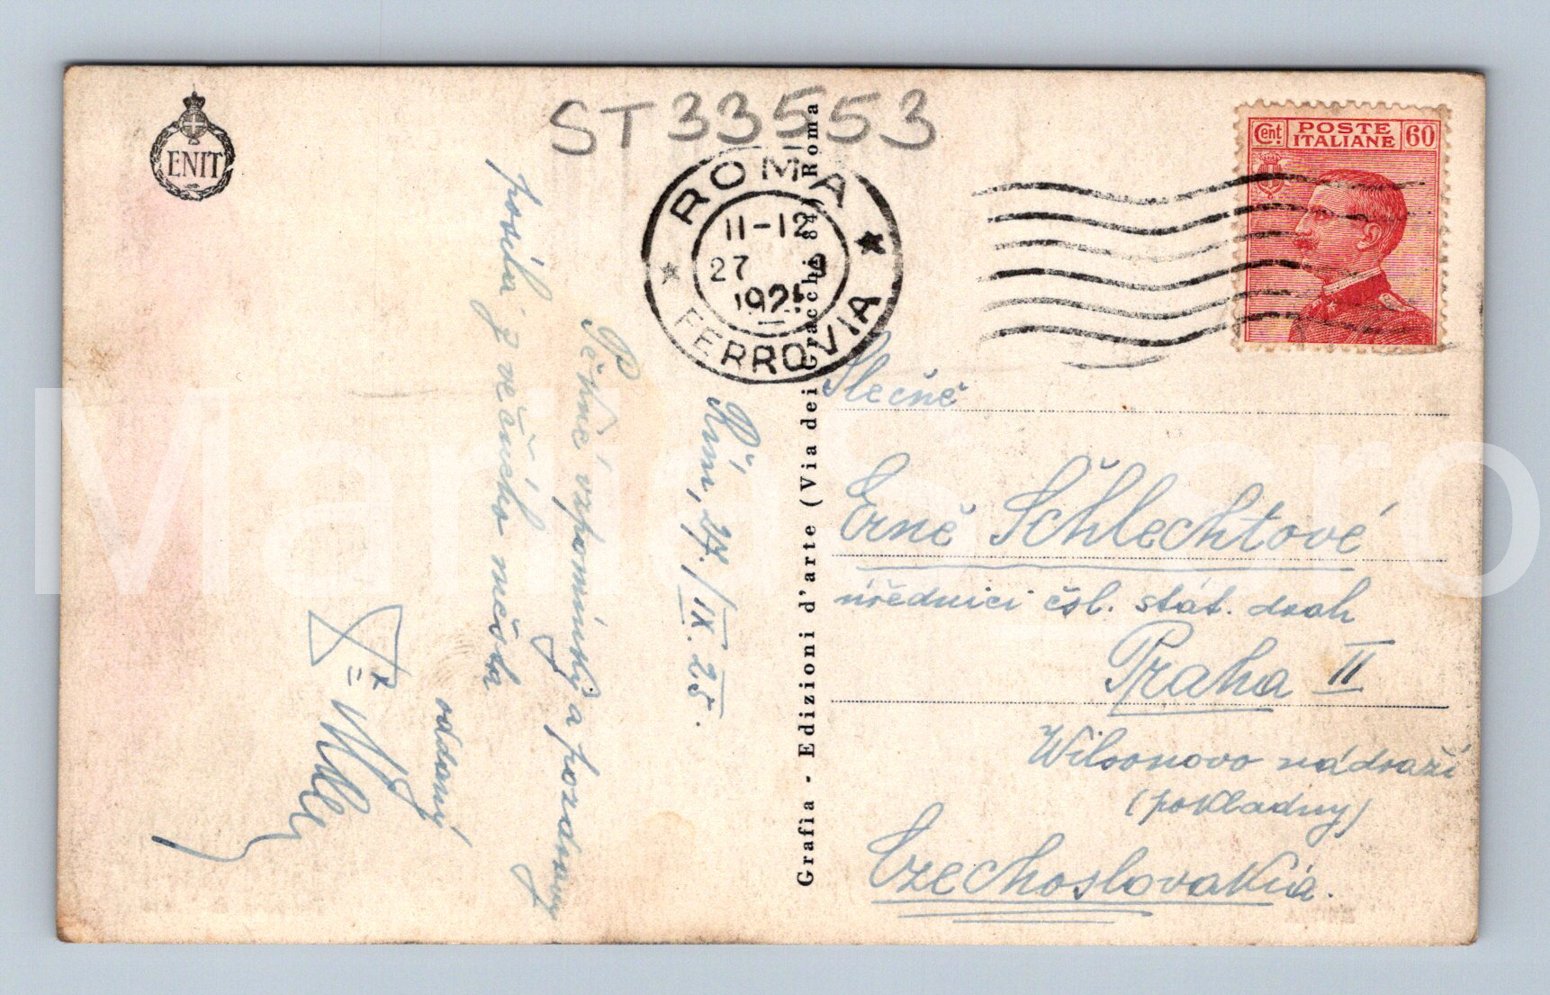 ENIT
ST33553
ROMA
11-12
27 9
1925
FERROVIA
Cent. POSTE ITALIANE 60
Řím, 27./IX. 25.
Pěkné vzpomínky a pozdravy
posílá z věčného města
oddaný
Slečně
Erně Šchlechtové
úřednici čsl. stát. drah
Praha II
Wilsonovo nádraží
(pokladny)
Czechoslovakia.
Grafia - Edizioni d'arte (Via dei Gracchi 84) Roma